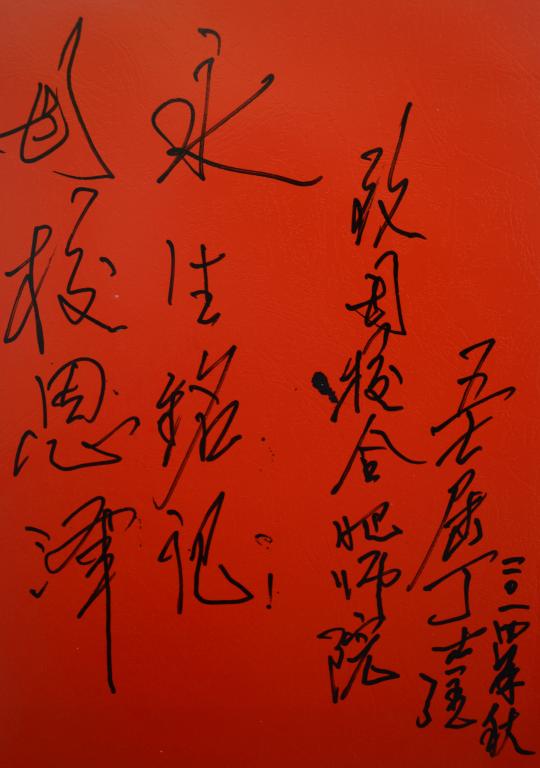 母校恩泽
永生铭记!
致母校合肥师院
五七届丁
二〇一四年秋